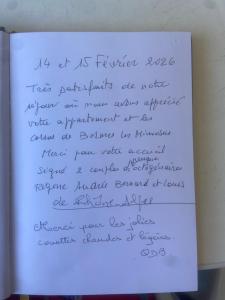 14 et 15 Février 2026
Très satisfaits de notre
séjour où nous avons apprécié
votre appartement et les
corsos de Bormes les Mimosas
Merci pour votre accueil
signé 2 couples presque d'octogénaires
Régine André Bernard et Louis
de
Merci pour les jolies
couettes chaudes et légères.